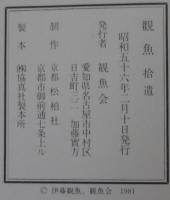 観魚拾遺
昭和五十六年二月十日発行
発行者 観魚会
愛知県名古屋市中村区
日吉町三二 加藤實方
制作 京都松柏社
京都市御前通七条上ル
製本 ㈱協真社製本所
© 伊藤観魚、観魚会 1981